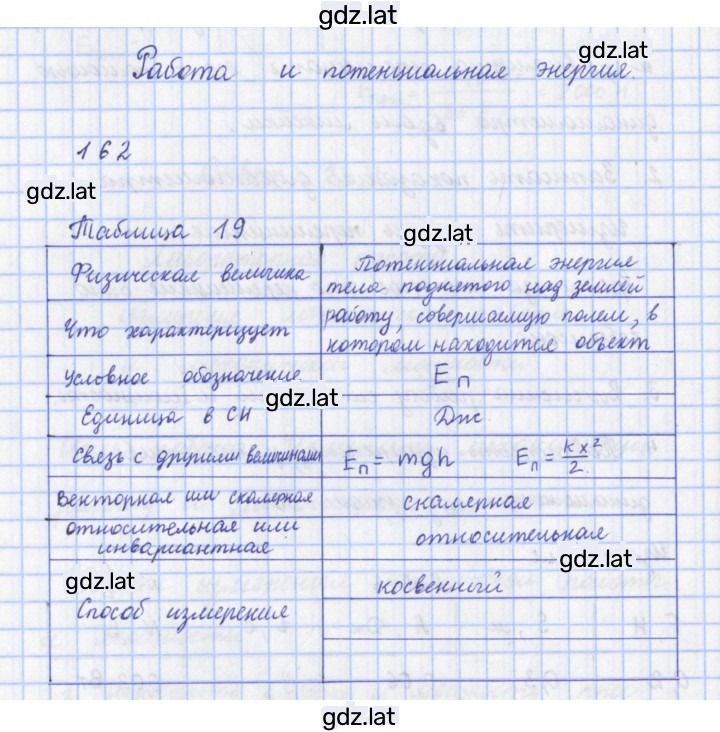 gdz.lat
gdz.lat
Работа и потенциальная энергия.
162
gdz.lat
Таблица 19
gdz.lat
Физическая величина
Потенциальная энергия
тела поднятого над землёй
Что характеризует
работу, совершаемую полем, в
котором находится объект
Условное обозначение
Eп
gdz.lat
Единица в СИ
Дж.
Связь с другими величинами
Eп = mgh Eп = kx²/2.
Векторная или скалярная
скалярная
относительная или
инвариантная
относительная
gdz.lat
gdz.lat
Способ измерения
косвенный
gdz.lat